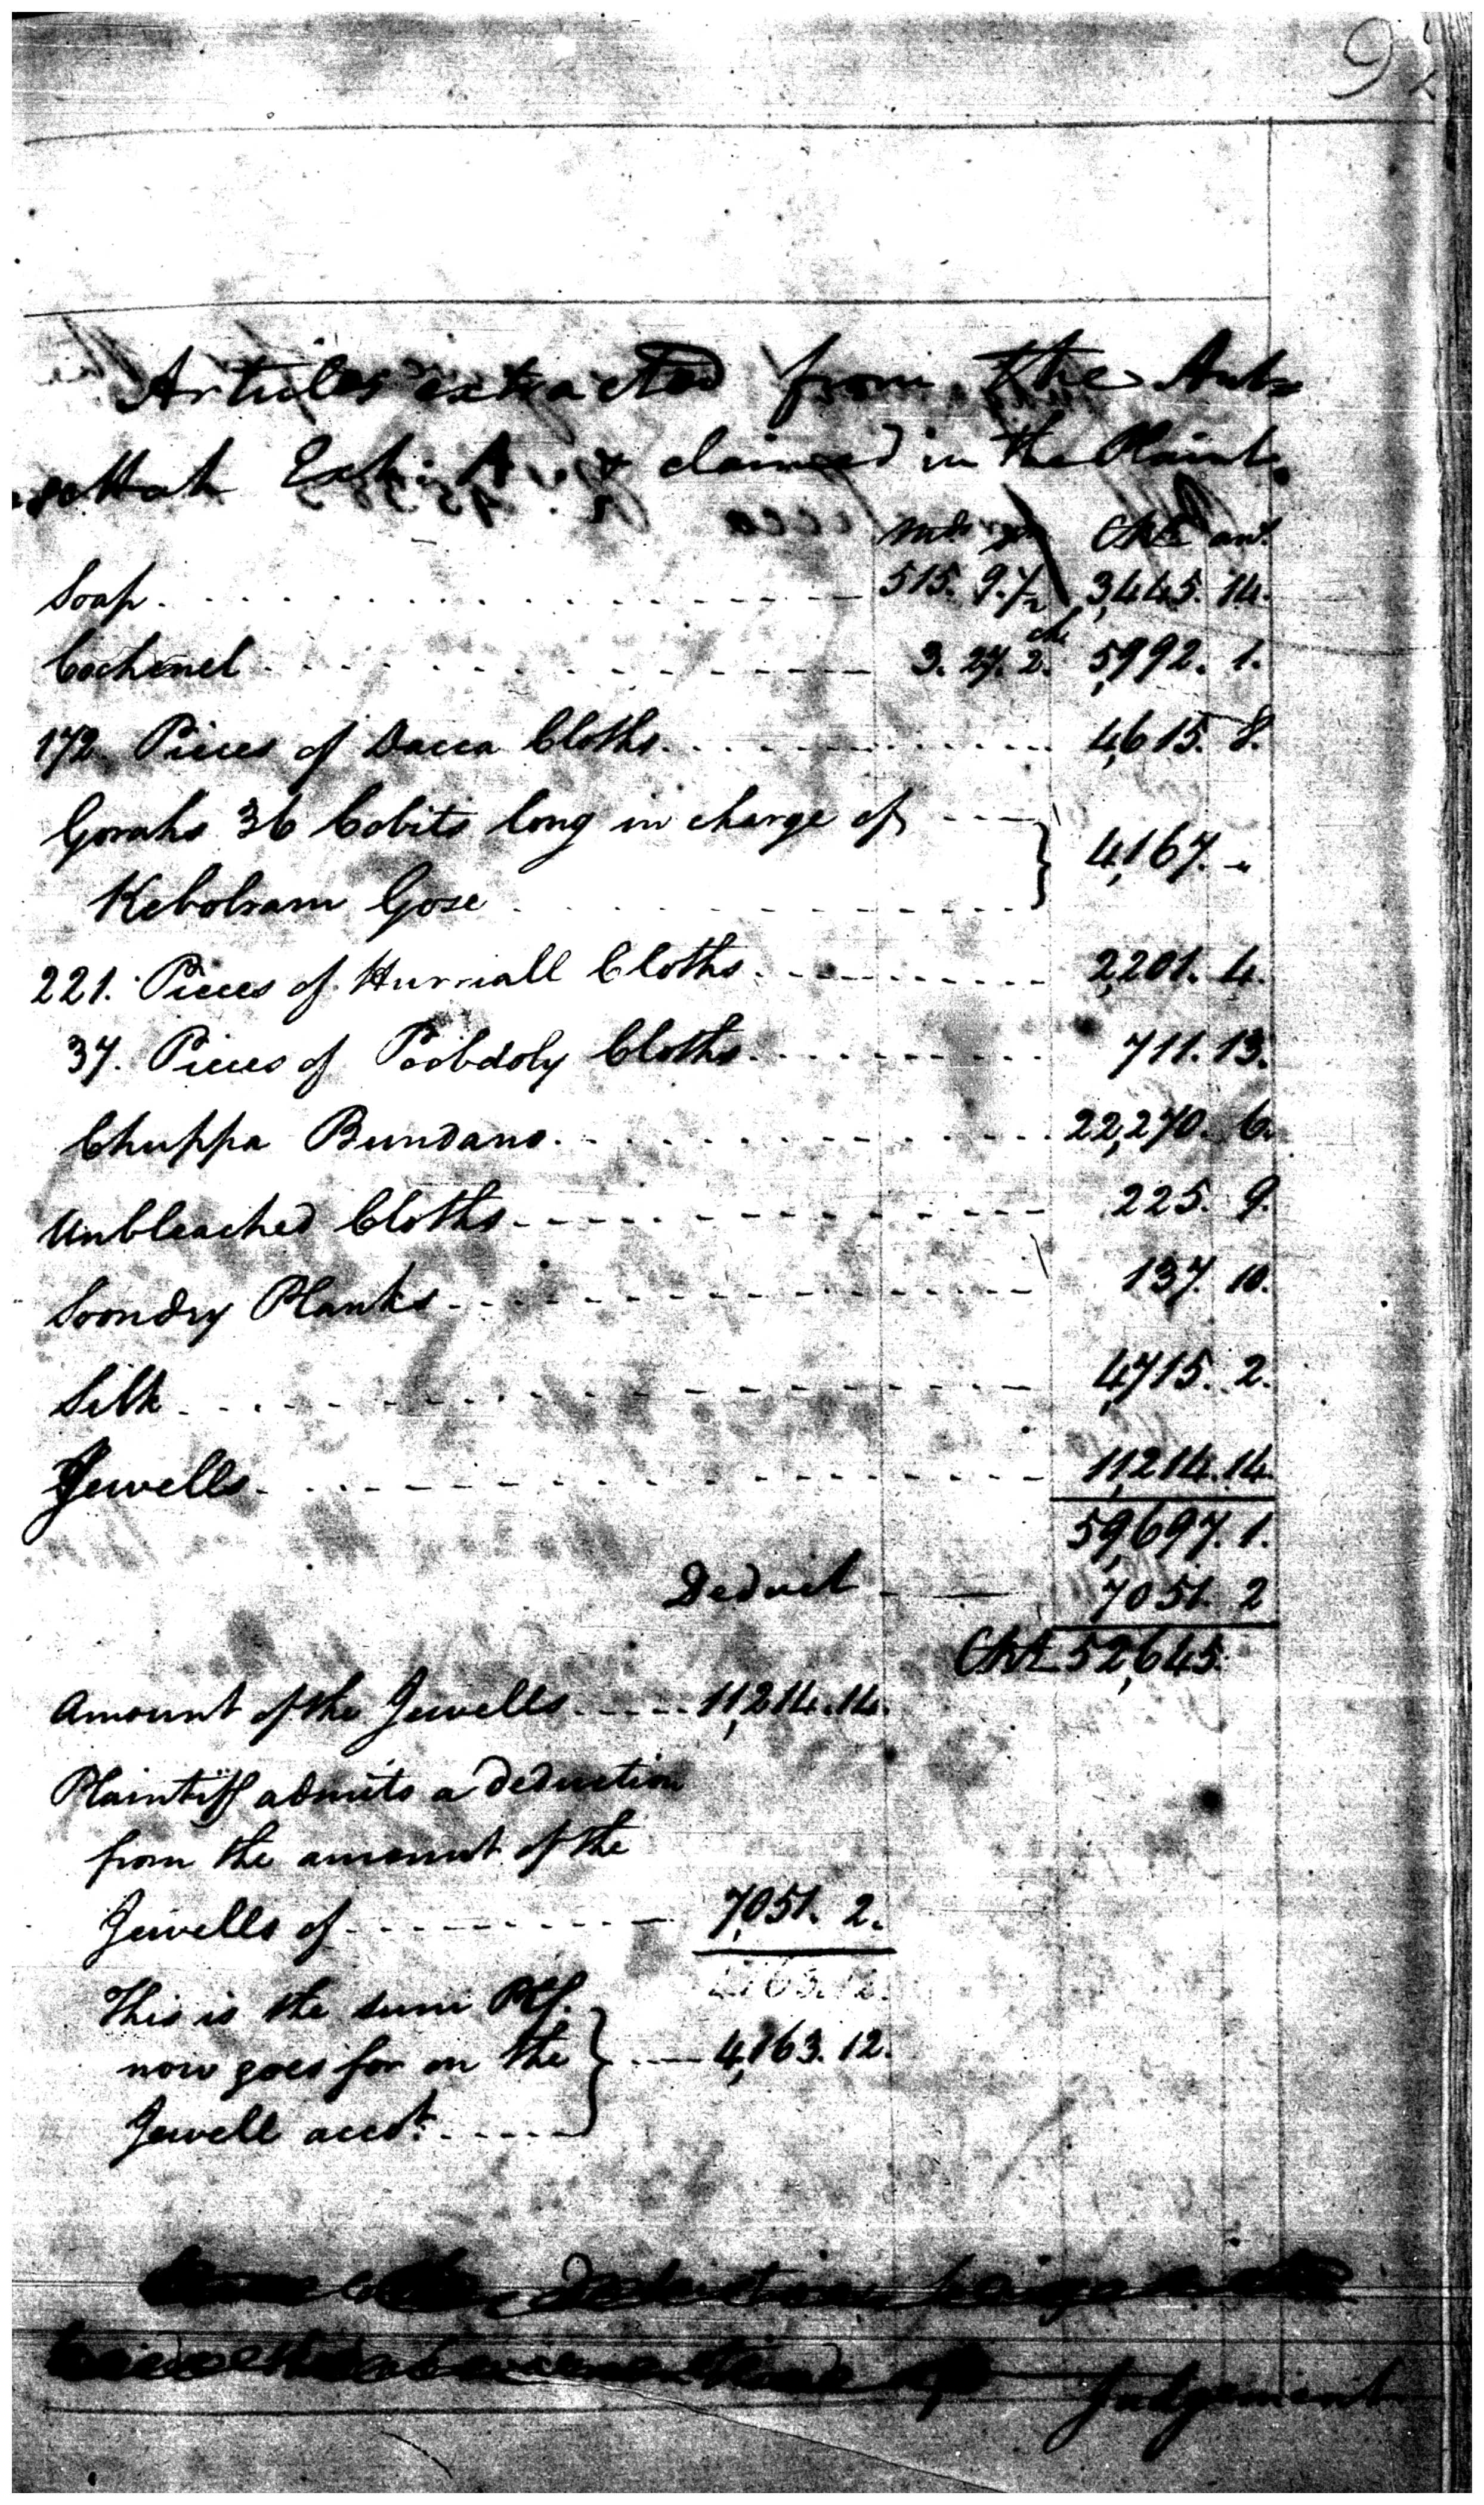 Articles extracted from the Aut
Exh: A & claimed in the Plaint.
mds CRs ans.
Soap 515. 9. ½ 3,445. 14.
Cochenel 3. 27. 2. ch 5,992. 1.
172 Pieces of Dacca Cloths 4,615. 8.
Gorahs 36 Cobits long in charge of
Kebolram Gose 4,167. "
221. Pieces of Hurriall Cloths 2,201. 4.
37. Pieces of Poobdoly Cloths 711. 13.
Chuppa Bundano 22,270. 6.
Unbleached Cloths 225. 9.
Soondry Planks 137. 10.
Silk 4,715. 2.
Jewells 11,214. 14.
59,697. 1.
Deduct 7051. 2
CRs 52,645.
Amount of the Jewells 11,214. 14.
Plaintiff admits a deduction
from the amount of the
Jewells of 7,051. 2.
This is the sum Plf.
now goes for on the 4,163. 12.
Jewell accot.
Judgement